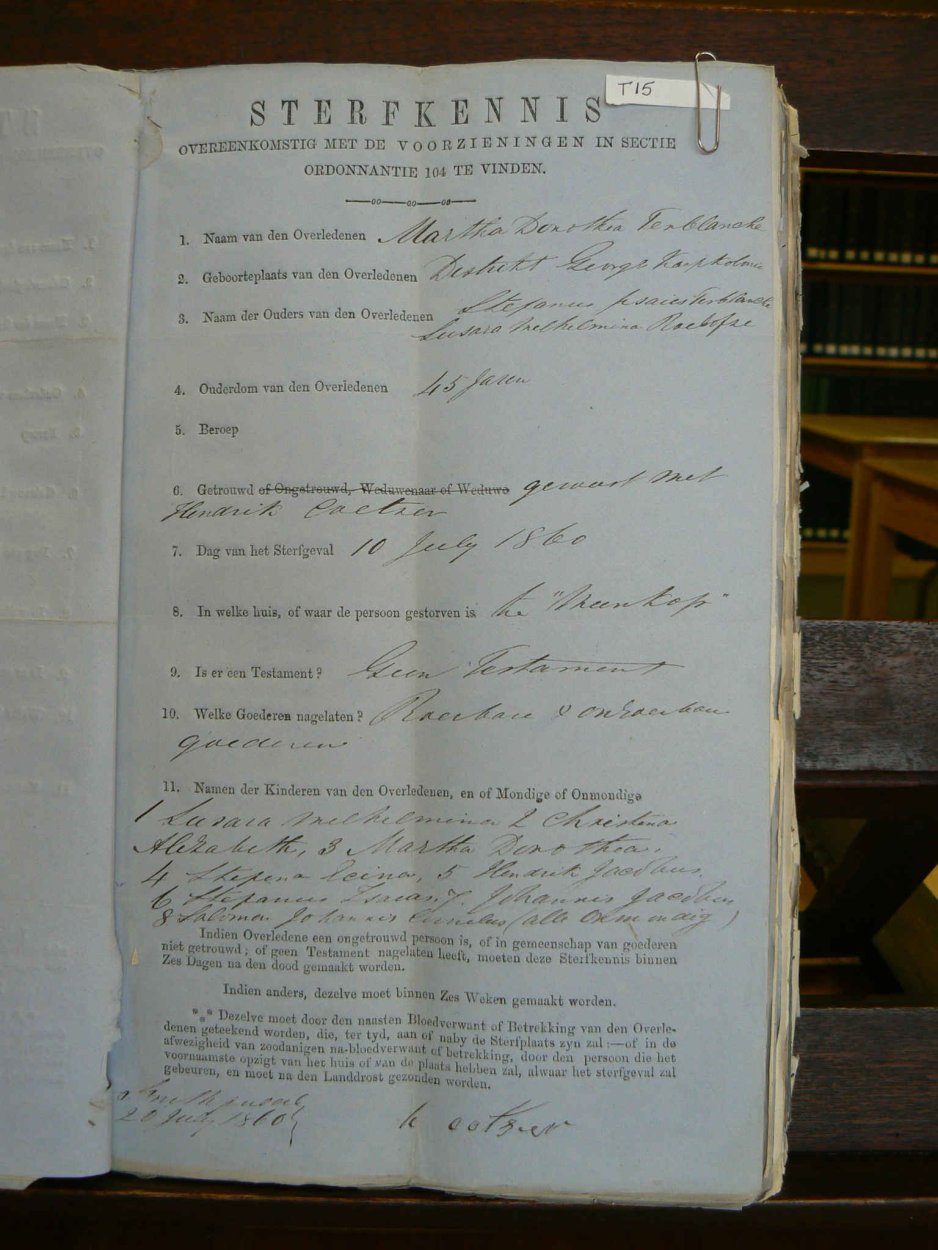 T15
STERFKENNIS
OVEREENKOMSTIG MET DE VOORZIENINGEN IN SECTIE
ORDONNANTIE 104 TE VINDEN.
1. Naam van den Overledenen Martha Dorothea Terblanche
2. Geboorteplaats van den Overledenen Distrikt George Kaapkolonie
Stefanus Esaies Terblanche
3. Naam der Ouders van den Overledenen
Susara Wilhelmina Roelofse
4. Ouderdom van den Overledenen 45 Jaren
5. Beroep
6. Getrouwd of Ongetrouwd, Weduwenaar of Weduwe geweest met
Hendrik Coetzer
7. Dag van het Sterfgeval 10 July 1860
8. In welke huis, of waar de persoon gestorven is te
9. Is er een Testament? Geen Testament
10. Welke Goederen nagelaten? Roerbare & onroerbare
goederen
11. Namen der Kinderen van den Overledenen, en of Mondige of Onmondige
1 Susara Wilhelmina 2 Christina
Alizabeth, 3 Martha Dorothea,
4 Stefina 5 Hendrik Jacobus,
6 Stefanus Esaias, 7. Johannis Jacobus
8 Salomon Johannis (alle onmondig)
Indien Overledene een ongetrouwd persoon is, of in gemeenschap van goederen
niet getrouwd; of geen Testament nagelaten heeft, moeten deze Sterfkennis binnen
Zes Dagen na den dood gemaakt worden.
Indien anders, dezelve moet binnen Zes Weken gemaakt worden.
*** Dezelve moet door den naasten Bloedverwant of Betrekking van den Overle-
denen geteekend worden, die, ter tyd, aan of naby de Sterfplaats zyn zal:—of in de
afwezigheid van zoodanigen na-bloedverwant of betrekking, door den persoon die het
voornaamste opzigt van het huis of van de plaats hebben zal, alwaar het sterfgeval zal
gebeuren, en moet na den Landdrost gezonden worden.
20 July 1860 h cotzer